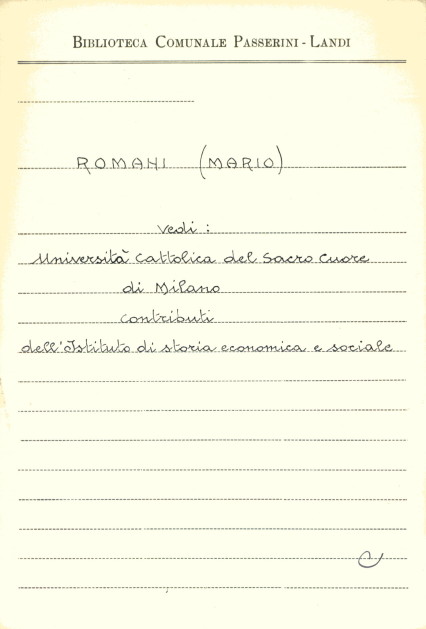 BIBLIOTECA COMUNALE PASSERINI - LANDI
ROMANI (MARIO)
vedi :
Università Cattolica del Sacro Cuore
di Milano
contributi
dell'Istituto di storia economica e sociale
C